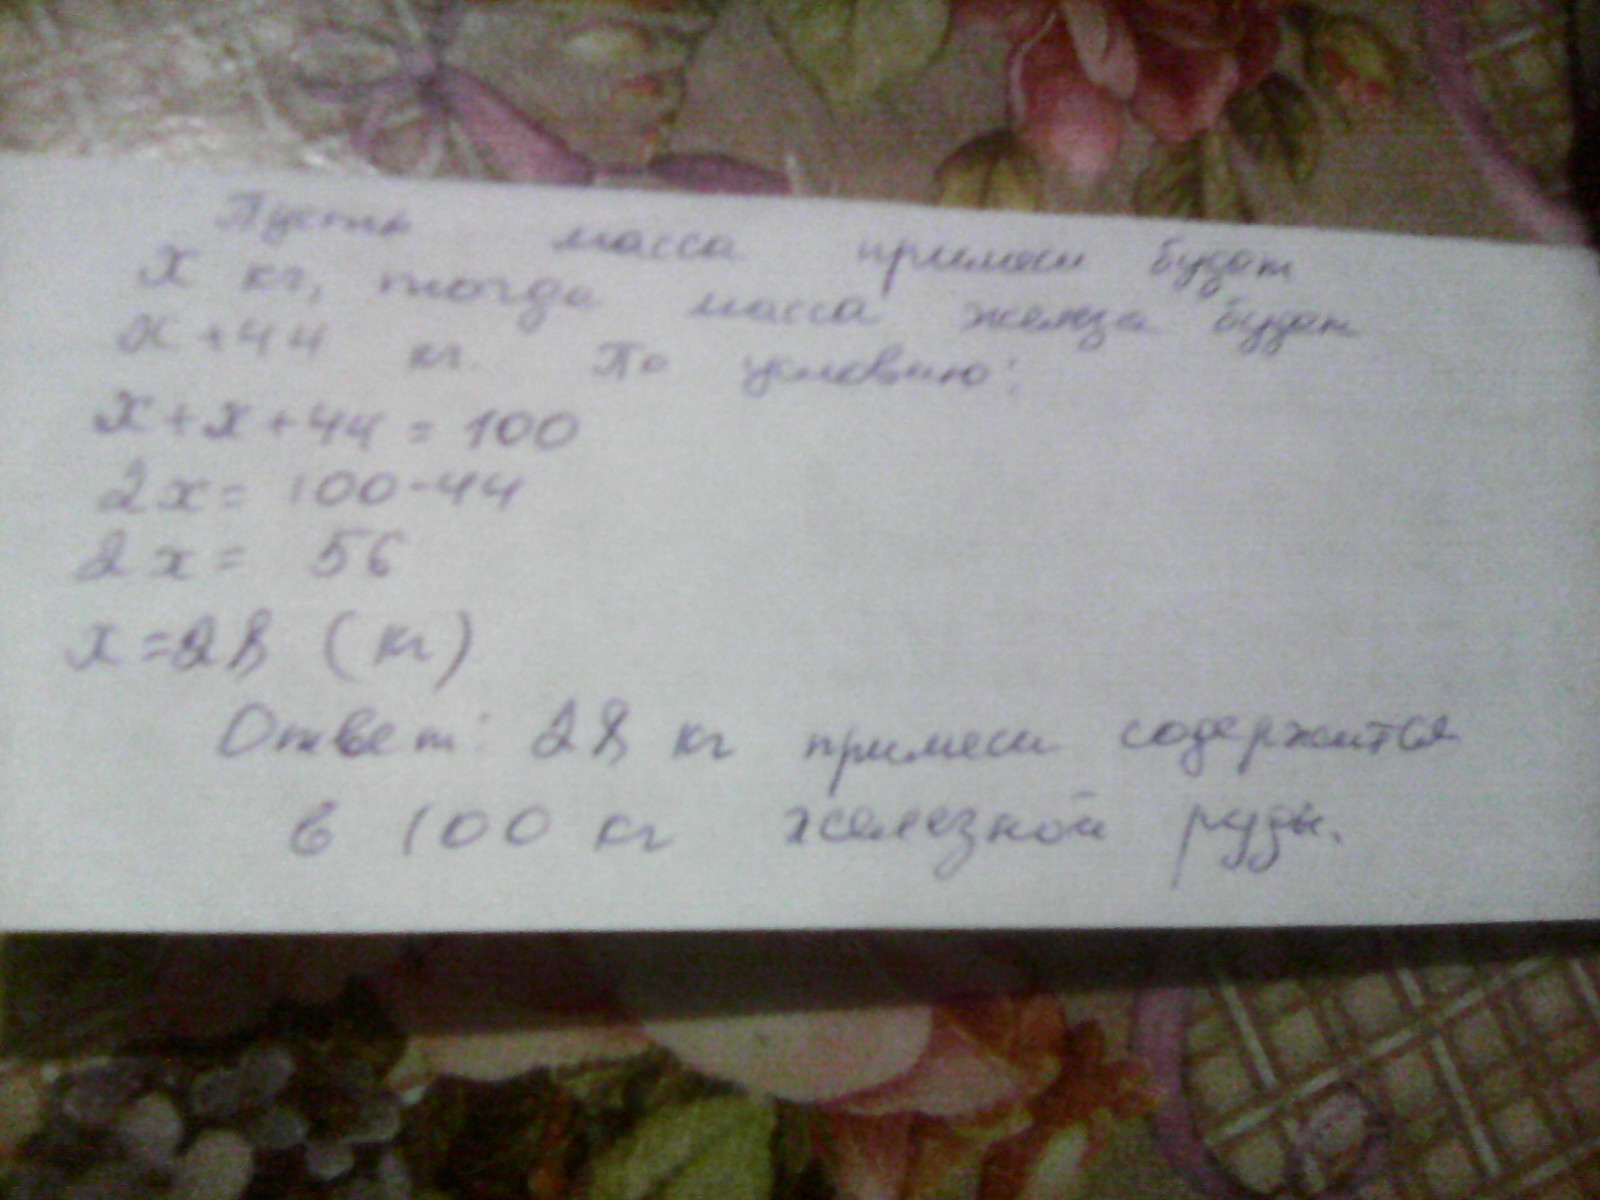 Пусть масса примеси будет
х кг, тогда масса железа будет
х+44 кг. По условию:
х+х+44=100
2х=100-44
2х= 56
х=28 (кг)
Ответ: 28 кг примеси содержится
в 100 кг железной руды.